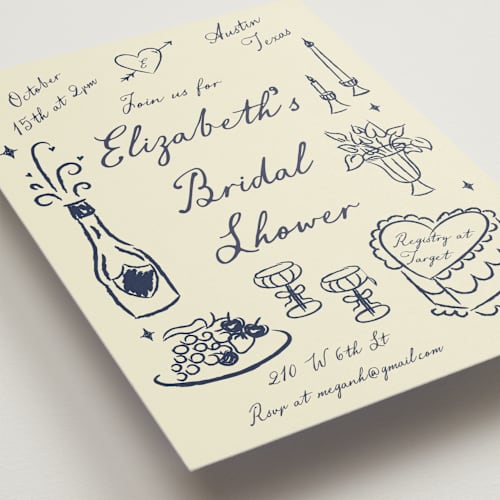 October
15th at 2pm
E
Austin
Texas
Join us for
Elizabeth's
Bridal
Shower
Registry at
Target
210 W 6th St
Rsvp at meganh@gmail.com